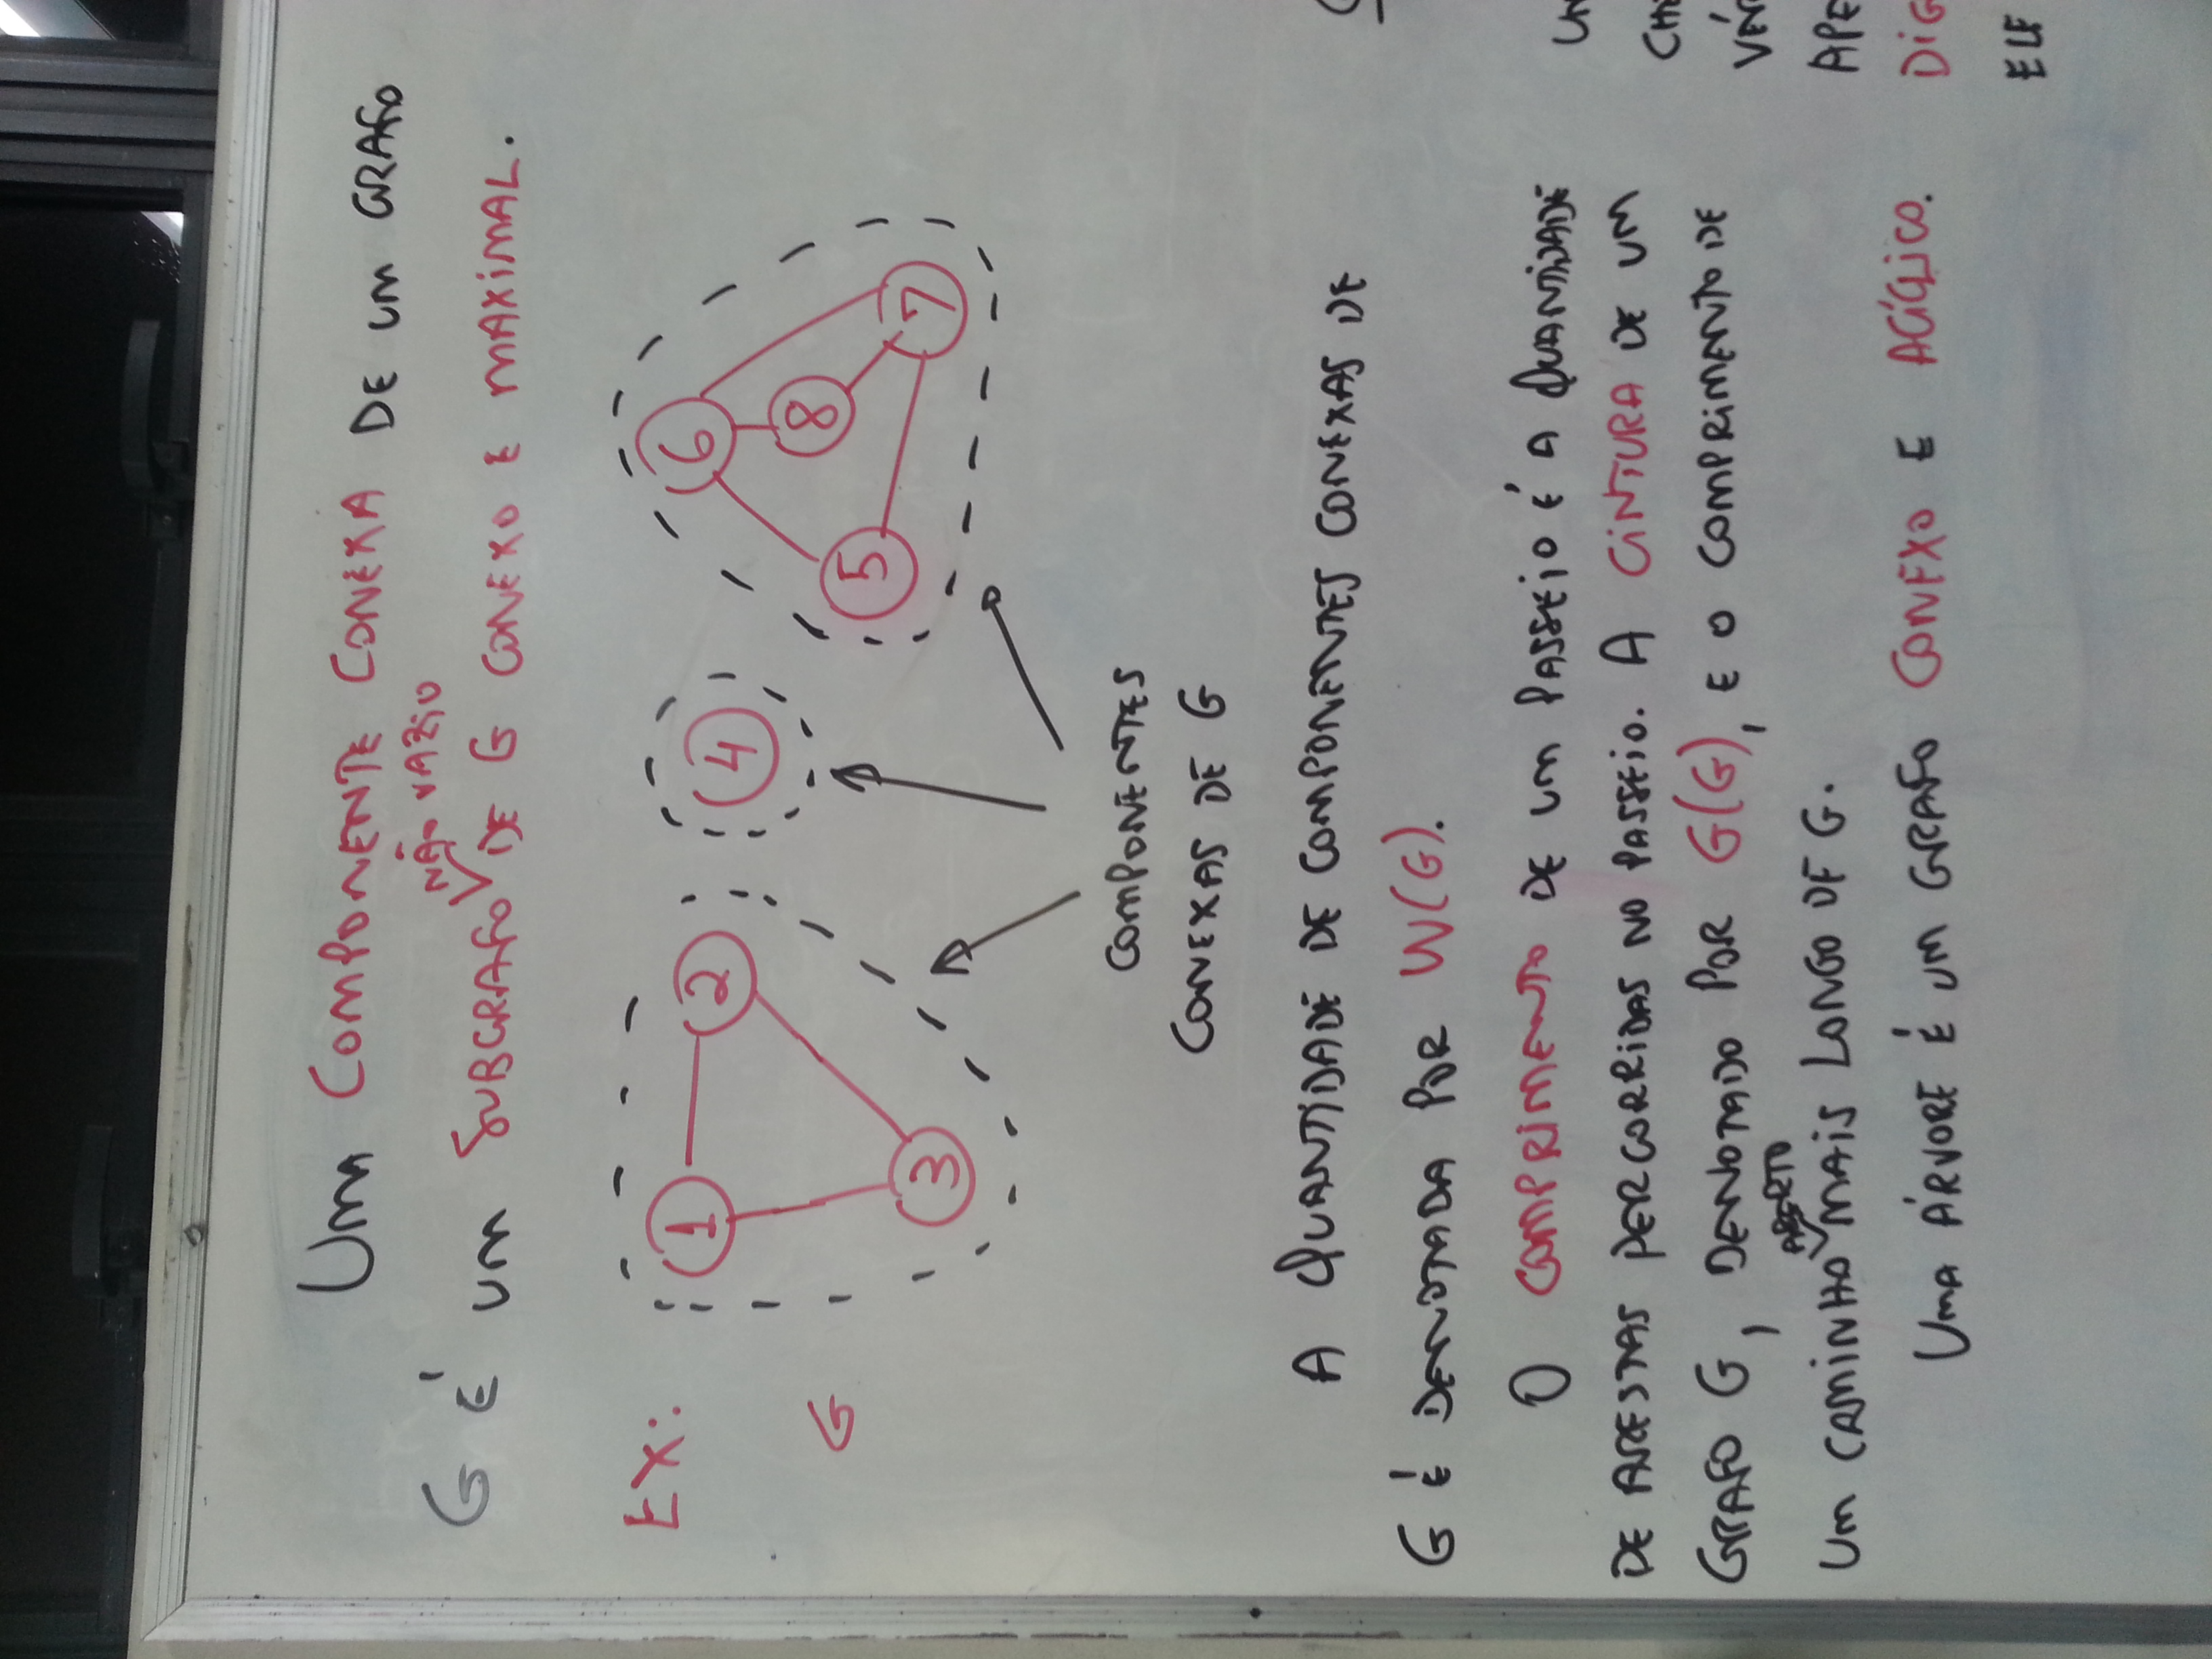 UMA COMPONENTE CONEXA DE UM GRAFO
NÃO VAZIO
G É UM SUBGRAFO DE G CONEXO E MAXIMAL.
EX:
1 2 4 6
8
G 5
3 7
COMPONENTES
CONEXAS DE G
A QUANTIDADE DE COMPONENTES CONEXAS DE
G É DENOTADA POR W(G).
O COMPRIMENTO DE UM PASSEIO É A QUANTIDADE
DE ARESTAS PERCORRIDAS NO PASSEIO. A CINTURA DE UM
GRAFO G, DENOTADO POR G(G), E O COMPRIMENTO DE
ABERTO
UM CAMINHO MAIS LONGO DE G.
UMA ÁRVORE É UM GRAFO CONEXO E ACÍCLICO.
UM
VÉR
APE
DIG
ELE